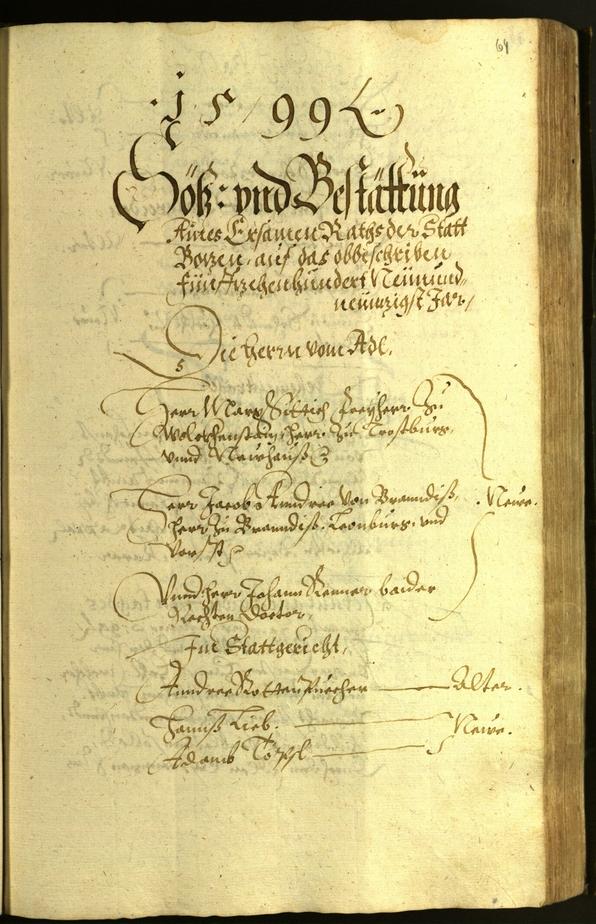 64
1599
Söz: vnd Bestättung
Aines Ersamen Raths der Statt
Bozen, auf das obbeschriben
Fünffzehenhundert Neünund-
neünzigst Jar,
Die Herrn vom Adl.
Herr Marx Sittich Freyherr zu
Wolckhenstain, Herr zu Trostburg,
vnnd Neuhauß
Herr Jacob Anndree von Branndiß, Newe.
Herr zu Branndiß, Leonburg, vnd
Vorst
Vnnd Herr Johann Renner baider
Rechten Doctor,
Im Stattgericht,
Anndree Rottenpuecher Alter.
Hannß Lieb. Newe.
Adamb Töpsl